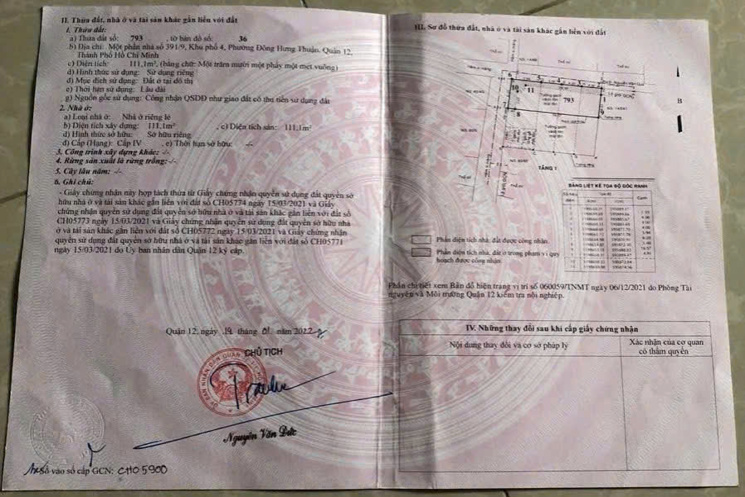 II. Thửa đất, nhà ở và tài sản khác gắn liền với đất
1. Thửa đất:
a) Thửa đất số: 793 , tờ bản đồ số: 36
b) Địa chỉ: Một phần nhà số 391/9, Khu phố 4, Phường Đông Hưng Thuận, Quận 12,
Thành Phố Hồ Chí Minh
c) Diện tích: 111,1m², (bằng chữ: Một trăm mười một phẩy một mét vuông)
d) Hình thức sử dụng: Sử dụng riêng
đ) Mục đích sử dụng: Đất ở tại đô thị
e) Thời hạn sử dụng: Lâu dài
g) Nguồn gốc sử dụng: Công nhận QSDĐ như giao đất có thu tiền sử dụng đất
2. Nhà ở:
a) Loại nhà ở: Nhà ở riêng lẻ
b) Diện tích xây dựng: 111,1m² , c) Diện tích sàn: 111,1m²
d) Hình thức sở hữu: Sở hữu riêng
đ) Cấp (Hạng): Cấp IV , e) Thời hạn sở hữu: -/-
3. Công trình xây dựng khác: -/-
4. Rừng sản xuất là rừng trồng: -/-
5. Cây lâu năm: -/-
6. Ghi chú:
- Giấy chứng nhận này hợp tách thửa từ Giấy chứng nhận quyền sử dụng đất quyền sở
hữu nhà ở và tài sản khác gắn liền với đất số CH05774 ngày 15/03/2021 và Giấy
chứng nhận quyền sử dụng đất quyền sở hữu nhà ở và tài sản khác gắn liền với đất số
CH05773 ngày 15/03/2021 và Giấy chứng nhận quyền sử dụng đất quyền sở hữu nhà ở
và tài sản khác gắn liền với đất số CH05772 ngày 15/03/2021 và Giấy chứng nhận
quyền sử dụng đất quyền sở hữu nhà ở và tài sản khác gắn liền với đất số CH05771
ngày 15/03/2021 do Ủy ban nhân dân Quận 12 ký cấp.
Quận 12, ngày 19 tháng 01 năm 2022
CHỦ TỊCH
Nguyễn Văn Đức
Số vào sổ cấp GCN: CH05900
III. Sơ đồ thửa đất, nhà ở và tài sản khác gắn liền với đất
B
10 11
793
1
TẦNG 1
BẢNG LIỆT KÊ TỌA ĐỘ GÓC RANH
Phần diện tích nhà, đất được công nhận.
Phần diện tích nhà, đất ở trong phạm vi quy
hoạch được công nhận.
Phần chi tiết xem Bản đồ hiện trạng vị trí số 060059/TNMT ngày 06/12/2021 do Phòng Tài
nguyên và Môi trường Quận 12 kiểm tra nội nghiệp.
IV. Những thay đổi sau khi cấp giấy chứng nhận
Nội dung thay đổi và cơ sở pháp lý
Xác nhận của cơ quan
có thẩm quyền